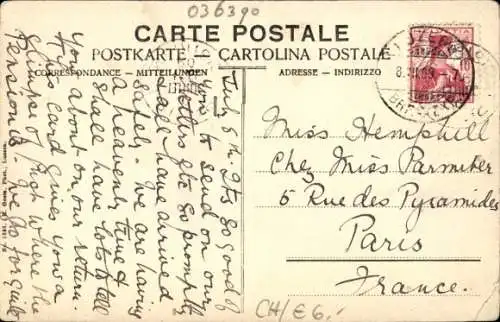 036390
CARTE POSTALE
POSTKARTE — CARTOLINA POSTALE
CORRESPONDANCE — MITTEILUNGEN
ADRESSE — INDIRIZZO
July 8th. It's so good of
you to send on our
letters etc so promptly
all have arrived
safely. We are having
a heavenly time &
shall have lots to tell
you about on our return.
This card gives you a
glimpse of high where the
Pension is. We go for quite
Miss Hemphill
Chez Miss Parmiter
5 Rue des Pyramides
Paris
France.
CH/E6.-